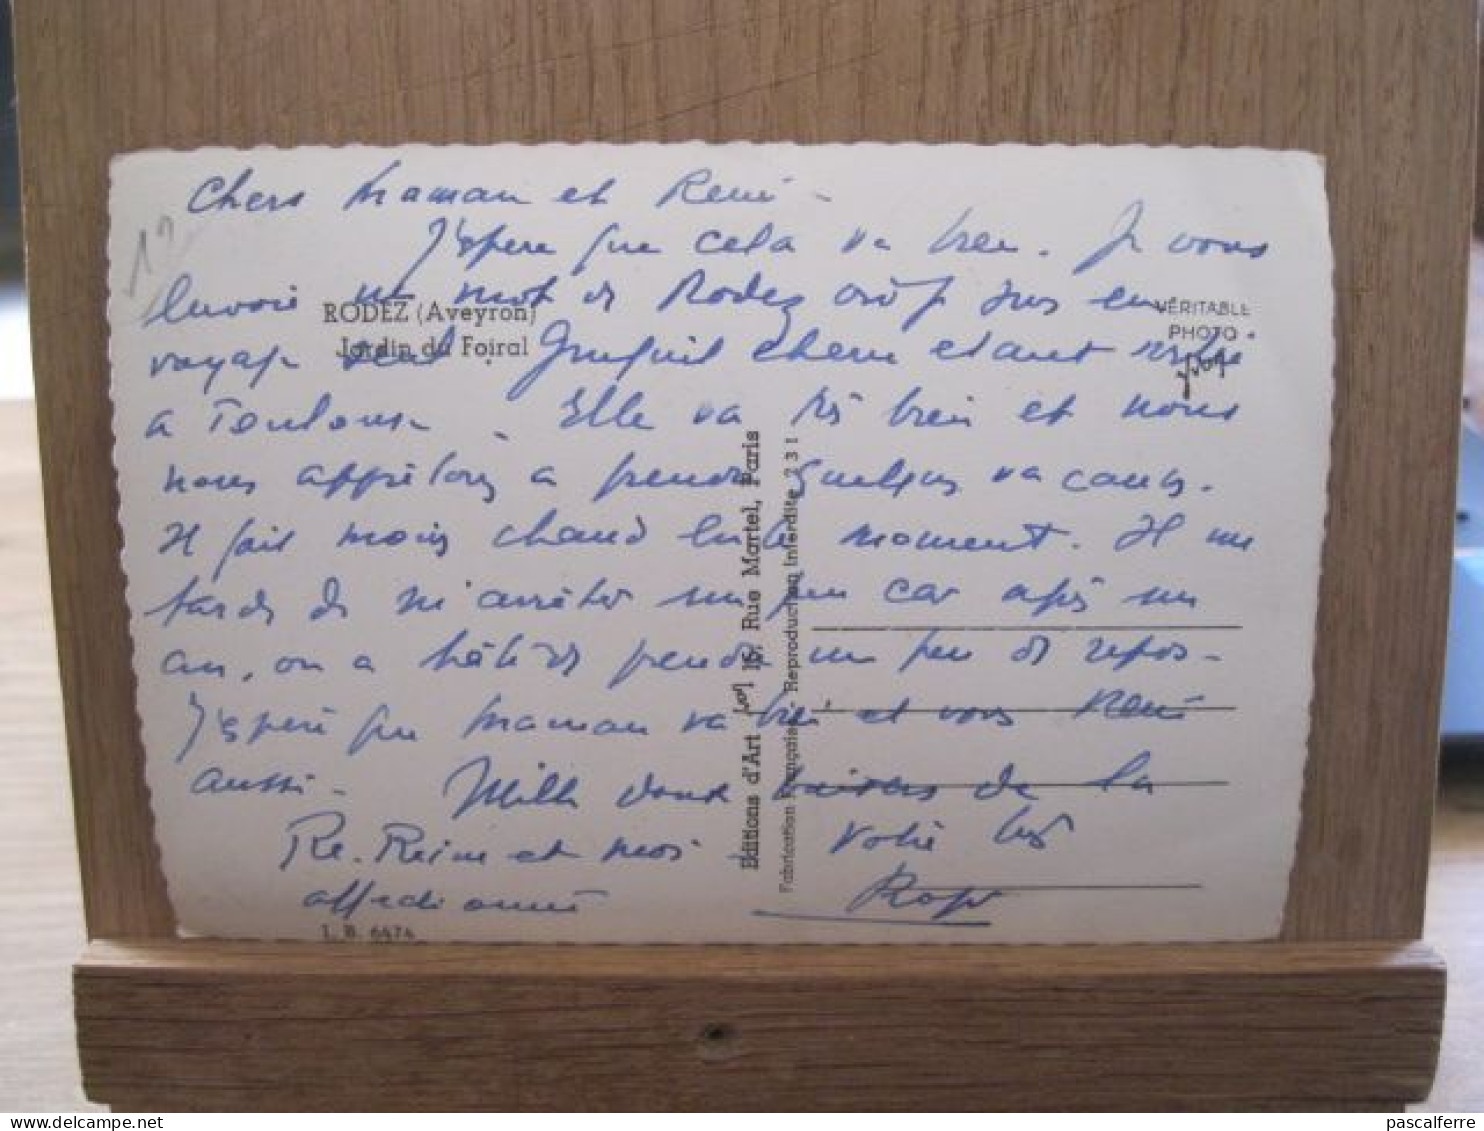 Chers Maman et René -
J'espère que cela va bien. Je vous
envoie un mot de Rodez où je suis en
voyage seul. étant restée
a Toulouse. Elle va très bien et nous
nous apprêtons a prendre quelques vacances.
Il fait moins chaud en ce moment. Il me
tarde de m'arrêter un peu car après un
an, on a hâte de prendre un peu de repos -
J'espère que Maman va bien et vous René
aussi - Mille doux baisers de la
Pte. Reine et moi votre
affectionné
RODEZ (Aveyron)
Jardin du Foiral
VÉRITABLE
PHOTO
Yvon
Editions d'Art Yvon 15, Rue Martel, Paris
Fabrication Française - Reproduction Interdite 231
I. B. 6474
delcampe.net
pascalferre